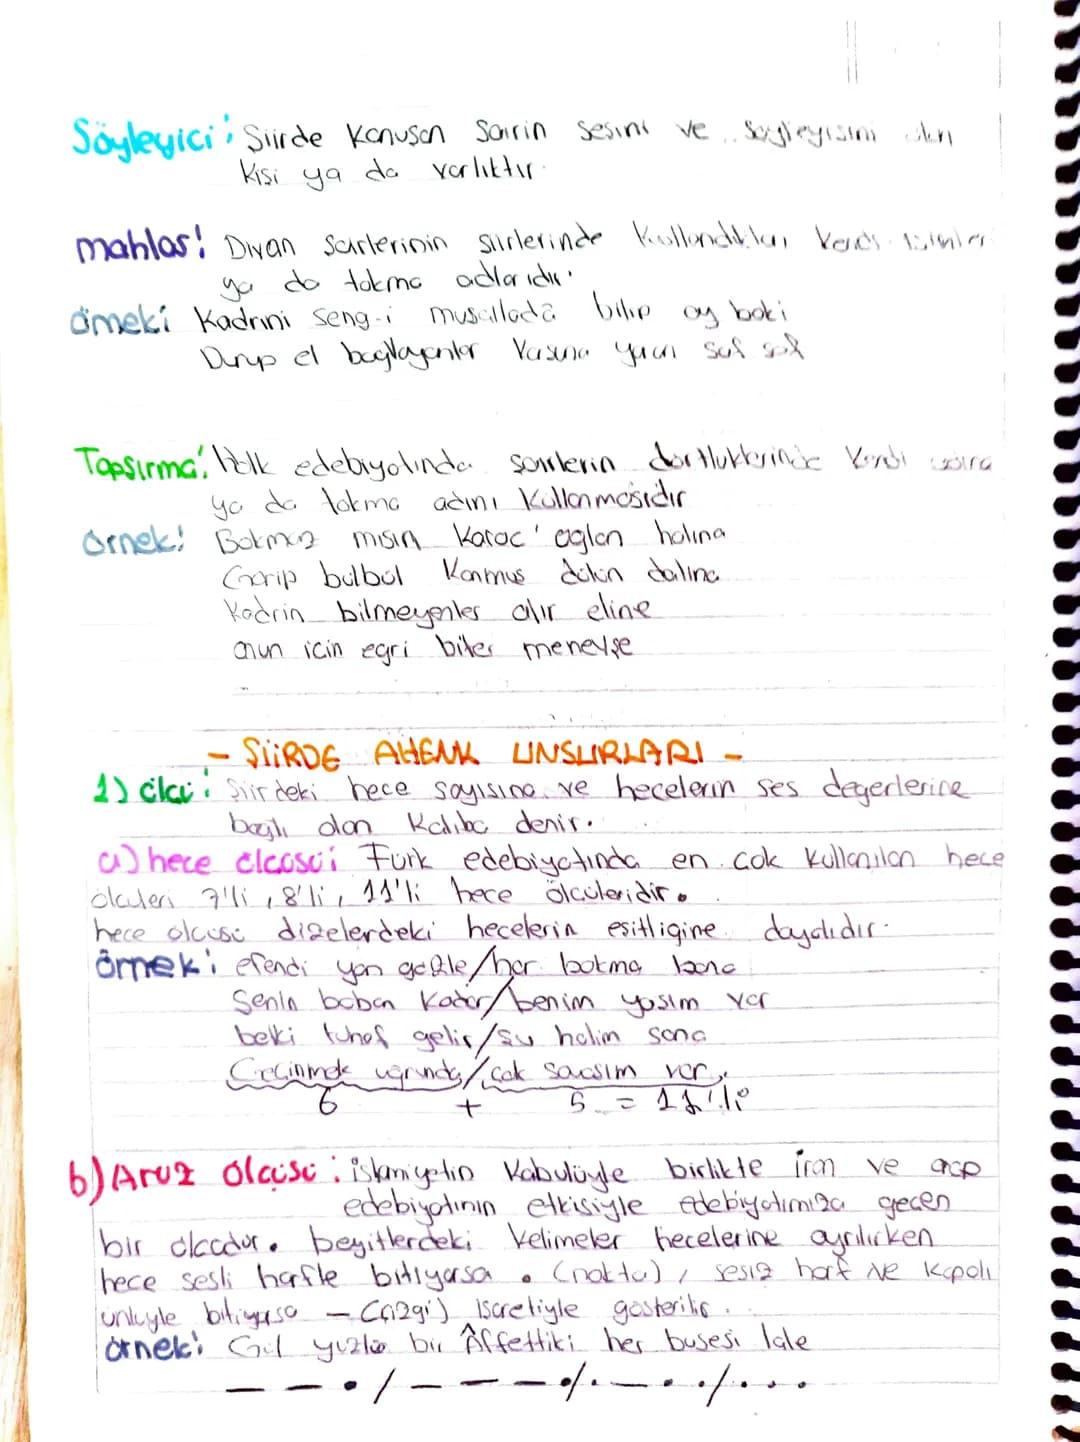 Söyleyici: Şiirde Konuşan Şairin sesini ve söyleyişini alan
Kişi ya da varlıktır.
mahlas: Divan Şairlerinin şiirlerinde Kullandıkları Kendi isimleri
ya da takma adlarıdır.
örnek: Kadrini seng-i musallada bilip ey baki
Durup el bağlayanlar Yarana yaran saf saf
Tapşırma: Halk edebiyatında şairlerin dörtlüklerinde Kendi
ya da takma adını Kullanmasıdır
örnek: Bakmaz mısın Karac'oğlan halına
Garip bülbül Konmuş dalına
Kadrin bilmeyenler alır eline
onun için eğri biter menevşe
- ŞİİRDE AHENK UNSURLARI -
1) ölçü: Şiirdeki hece sayısına ve hecelerin ses değerlerine
bağlı olan Kalıba denir.
a) hece ölçüsü: Türk edebiyatında en çok Kullanılan hece
ölçüleri 7'li, 8'li, 11'li hece ölçüleridir.
hece ölçüsü dizelerdeki hecelerin eşitliğine dayalıdır.
örnek: efendi yan gözle/hor bakma bana
Senin baban Kadar/benim yaşım var
belki tuhaf gelir/şu halim sana
Geçinmek uğrunda/çok savaşım var.
6 + 5 = 11'li
b) Aruz ölçüsü: islamiyetin Kabulüyle birlikte iran ve arap
edebiyatının etkisiyle edebiyatımıza geçen
bir ölçüdür. beyitlerdeki kelimeler hecelerine ayrılırken
hece sesli harfle bitiyorsa . (nokta), sesiz harf ve Kapalı
ünlüyle bitiyosa — (çizgi) işaretiyle gösterilir.
örnek: Gül yüzlü bir Âfettiki her busesi lale
— — . / — — — . / . — . . / . . .